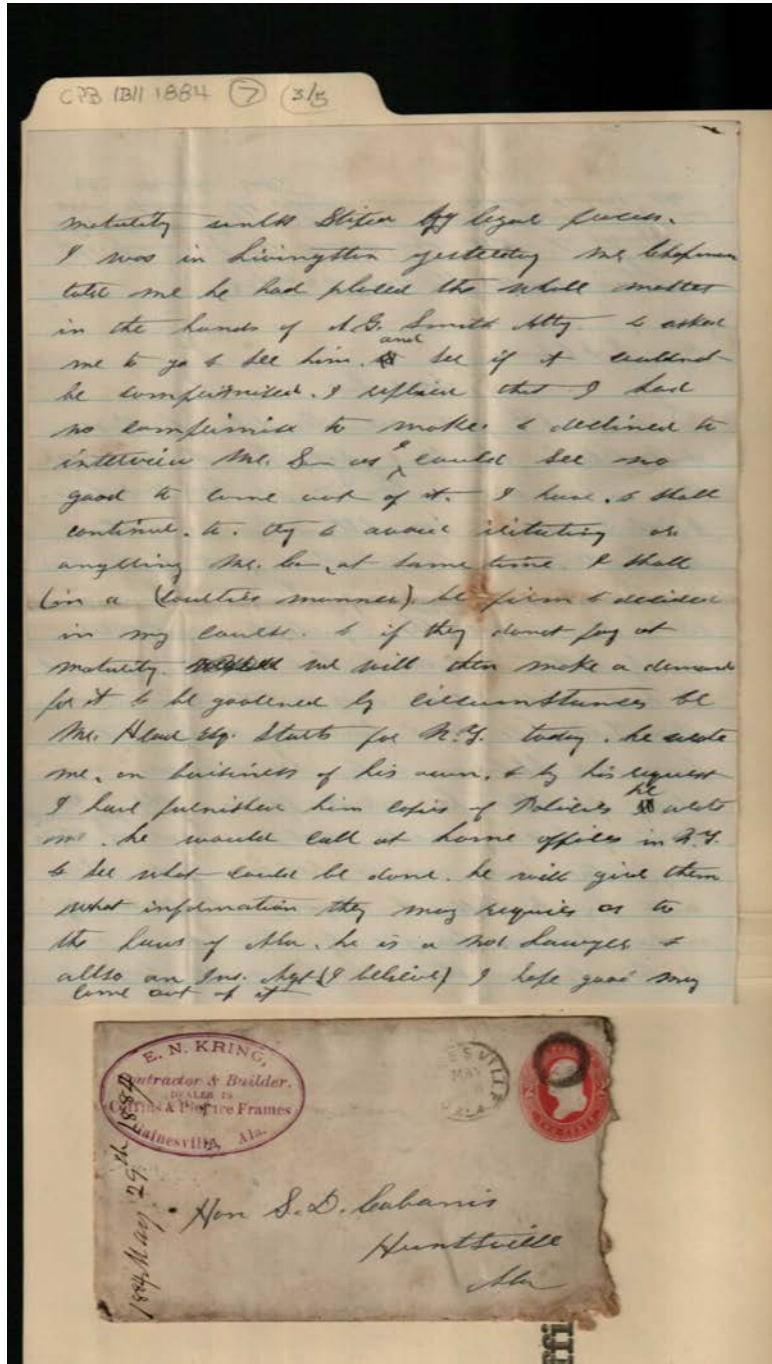 CPB IBII 1884 7 3/5
matutity unless Stoped By legal process.
I was in Livingston yesterday Mr Chapman
told me he had placed the whole matter
in the hands of A.G. Smith Atty. & asked
me to go & see him. and see if it couldnot
be compromised. I replied that I had
no compromise to make. & declined to
interview Mr. S— as I could see no
good to come out of it. I have. & shall
continue. to. try & avoid iritating or
anything Mr. at same time. I shall
(in a manner). be firm & decided
in my course. & if they donot pay at
maturity. we will then make a demand
for it & be goverened by circumstances
Mr. Head Esq. Starts for N.Y. today. he wrote
me, on buisiness of his own. & by his request
I have furnished him copies of Policies he wrote
me. he would call at home offices in N.Y.
& see what could be done. he will give them
what information they may requier as to
the Laws of Ala. he is a Lawyer &
allso an Ins. Agt (I believe) I hope good may
come out of it
E. N. KRING,
Contractor & Builder.
DEALER IN
Coffins & Picture Frames
Gainesville, Ala.
ESVILLE
MAY
ALA
1884 May 29th 1884
Hon S. D. Cabanis
Huntsville
Ala
ffi